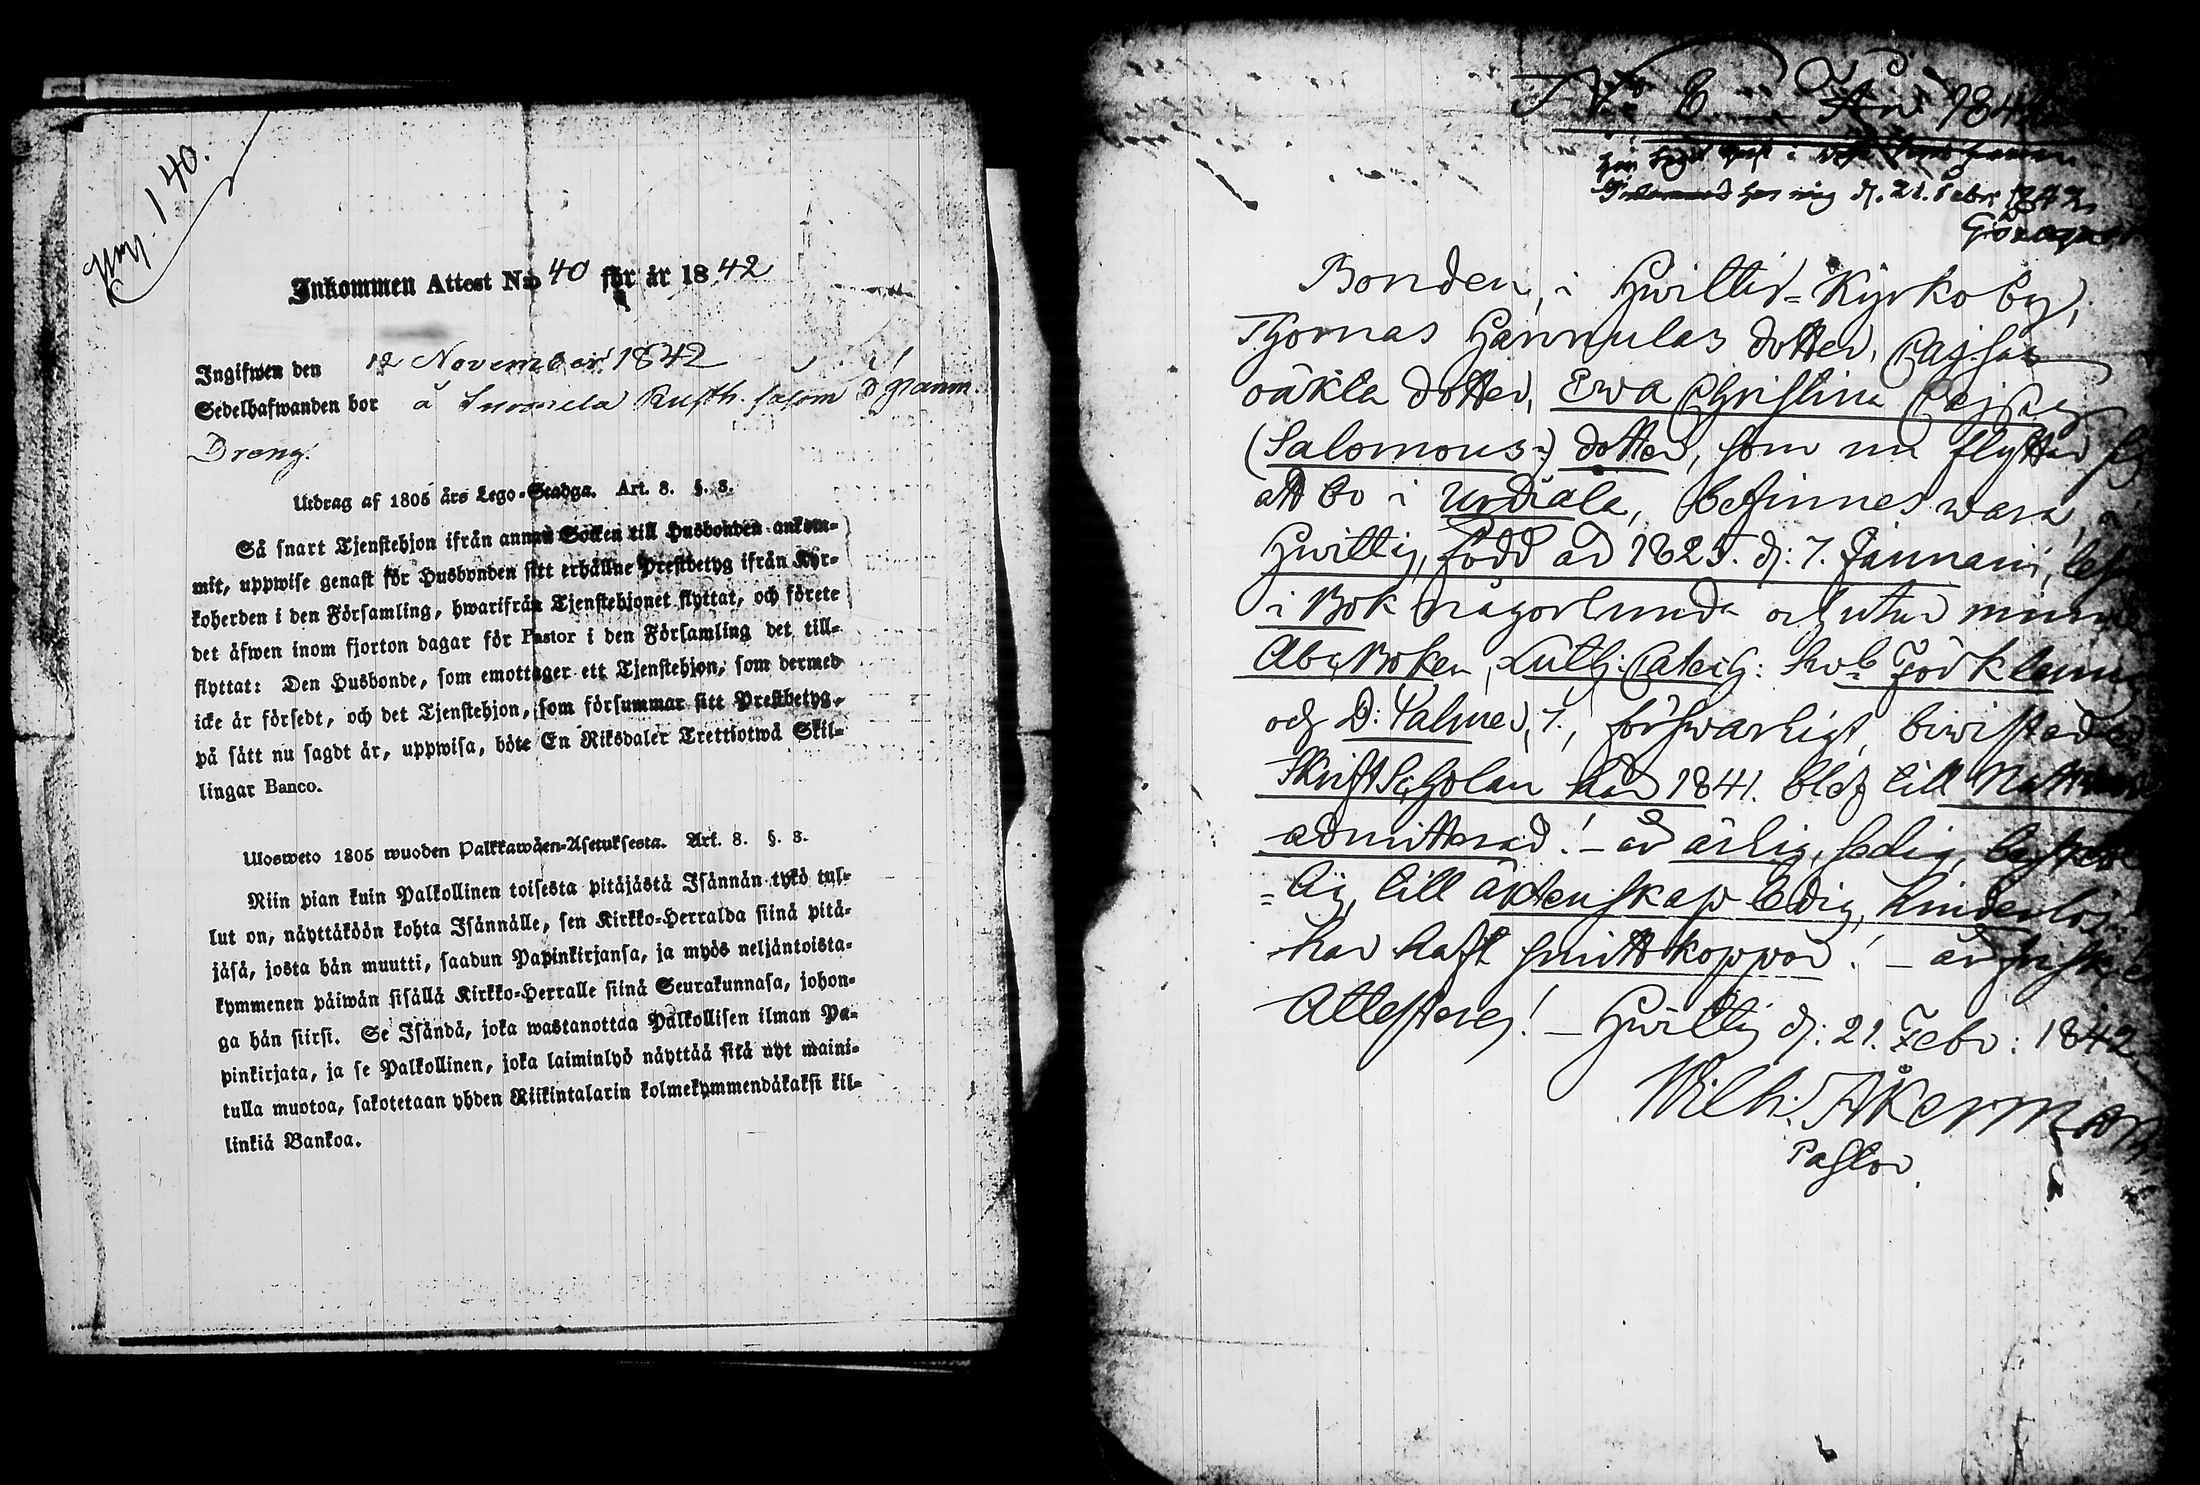 140.
Inkommen Attest No 40 för år 1842
Ingifwen den 12 November 1842
Sedelhafwanden bor å Suomela Rusth. såsom
Dreng.
Utdrag af 1805 års Lego-Stadga. Art. 8. §. 8.
Så snart Tjenstehjon ifrån annan Socken till Husbonden ankom-
mit, uppwise genast för Husbonden sitt erhållne Prestbetyg ifrån Kyr-
koherden i den Församling, hwarifrån Tjenstehjonet flyttat, och förete
det äfwen inom fjorton dagar för Pastor i den Församling det till-
flyttat: Den Husbonde, som emottager ett Tjenstehjon, som dermed
icke är försedt, och det Tjenstehjon, som försummar sitt Prestbetyg,
på sätt nu sagdt är, uppwisa, böte En Riksdaler Trettiotwå Skil-
lingar Banco.
Ulosweto 1805 wuoden Palkkawäen-Asetuksesta. Art. 8. §. 8.
Niin pian kuin Palkollinen toisesta pitäjästä Isännän tykö tul-
lut on, näyttäköön kohta Isännälle, sen Kirkko-Herralda siinä pitä-
jäsä, josta hän muutti, saadun Papinkirjansa, ja myös neljäntoista-
kymmenen päiwän sisällä Kirkko-Herralle siinä Seurakunnasa, johon-
ga hän siirsi. Se Isändä, joka wastanottaa Palkollisen ilman Pa-
pinkirjata, ja se Palkollinen, joka laiminlyö näyttää sitä nyt maini-
tulla muotoa, sakotetaan yhden Riikintalarin kolmekymmendäkaksi kil-
linkiä Bankoa.
No 6 184
hos mig d. 21. Febr 1842
Bonden, i Hwittis-Kyrkoby,
Thomas Hannulas dotter, Cajsas
oäkta dotter, Ewa Christina Cajsas
(Salomons-) dotter, som nu flyttar
att bo i Urdiala, befinnes wara, i
Hwittis, född år 1825. d: 7. Januarii,
i Bok någorlunda och utur minne
Abc Boken, Luth: Catech: hvb Förklaring
och D: Psalmer, 7., förswarligt, biwistade
Skriftscholan här 1841. blef till Nattward
admitterad! - är ärlig, sedig, beskedl
=lig, till äktenskap ledig, hinderlös:
har haft smittkoppor! - är frisk
Attesteras! - Hwittis d: 21. Febr: 1842
Wilh: Åkerman
Pastor.